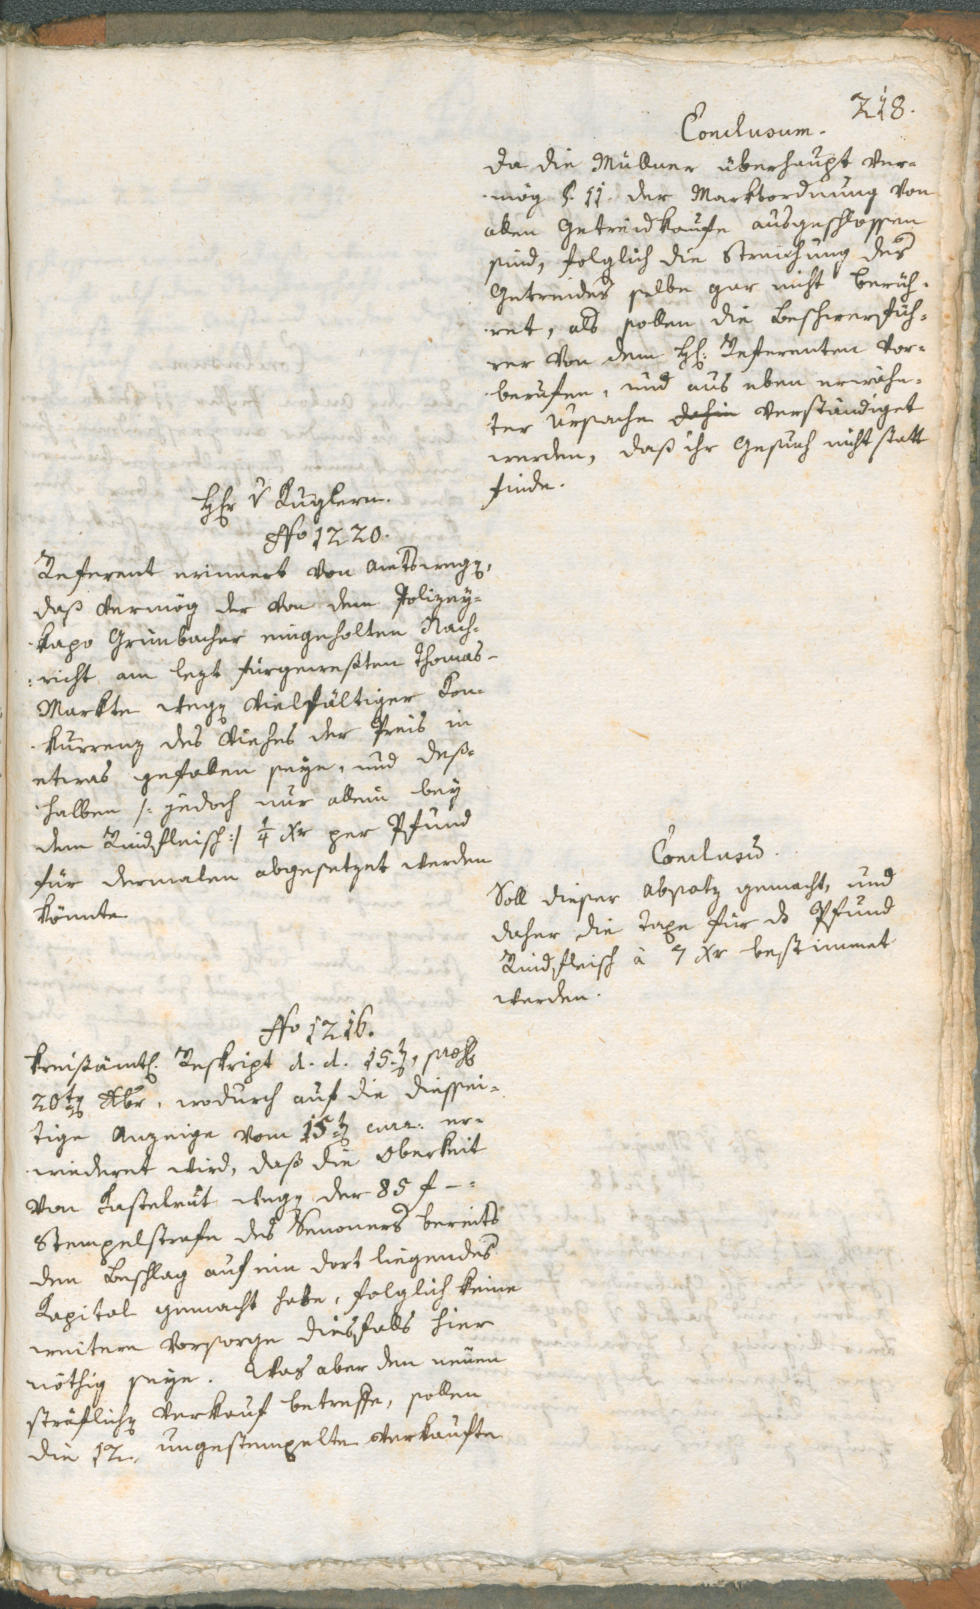 218.
Conclusum.
Da die Müllner überhaupt ver-
mög §. 11. der Marktordnung von
allen Getreidkaufe ausgeschlossen
sind, folglich die Streichung des
Getreides selbe gar nicht berüh-
ret, als sollen die Beschwerfüh-
rer von dem H: Referenten vor-
berufen, und aus eben erwähn-
ter Ursache dahin verständiget
werden, daß ihr Gesuch nicht statt
finde.
Hr v Kuglern.
No 1220.
Referent erinnert von Amtsweg,
daß vermög der von dem Polizey-
kapo Grünbacher eingeholten Nach-
richt am lezt fürgewesten Thomas-
Markte weg vielfältiger Kon-
kurrenz des Viehes der Preis in
etwas gefallen seye, und deß-
halben /: jedoch nur allein bey
dem Rindfleisch :/ 1/4 xr per Pfund
für dermalen abgesetzet werden
könnte.
Conclusū.
Soll dieser Absatz gemacht, und
daher die Taxe für ds Pfund
Rindfleisch à 7 xr bestimmet
werden.
No 1216.
Kreisämtl. Reskript d. d. 15.,
20 Xbr, wodurch auf die diessei-
tige Anzeige vom 15 curr. er-
wiederet wird, daß die Oberkeit
von Kastelrut weg der 85 f –:
Stempelstrafe des Senoners bereits
den Beschlag auf ein dort liegendes
Kapital gemacht habe, folglich keine
weitere Vorsorge diesfalls hier
nöthig seye. Was aber den neuen
sträflich Verkauf betreffe, sollen
die 12 ungestempelte verkaufte